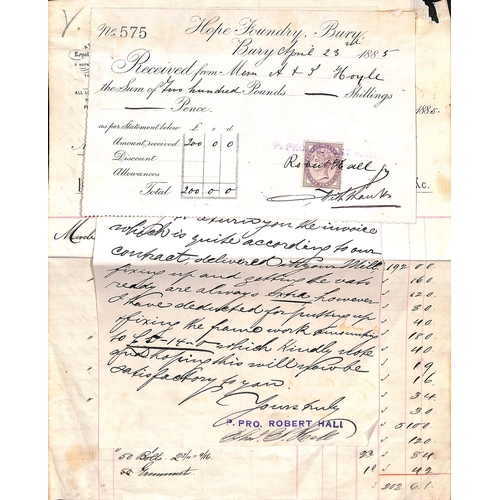 No. 575
Hope Foundry, Bury.
Bury April 23rd 1885
Received from Messrs A & T Hoyle
the Sum of Two hundred Pounds — Shillings
— Pence.
as per Statement below £ s d
Amount received 200 0 0
Discount
Allowances
Total 200 0 0
P. PRO.
Robert Hall
With thanks
1885
&c.
return you the invoice
which is quite according to our
contract, delivered at your Mill
fixing up and getting the vats
ready are always extra however
I have deducted for putting up
& fixing the frame work amounting
to £5-14-0 which kindly note
and hoping this will now be
satisfactory to you.
Yours truly
P. PRO. ROBERT HALL
192 0 0
160
120
30
40
180
40
19
16
34
30
5100
120
54
49
50 Bolts
202 6 1